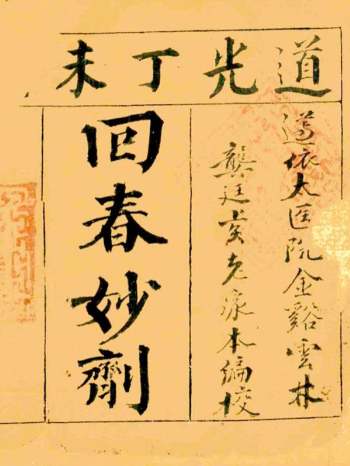 道光丁未
遵依太医院金谿雲林
龔廷賢老本編校
回春妙劑